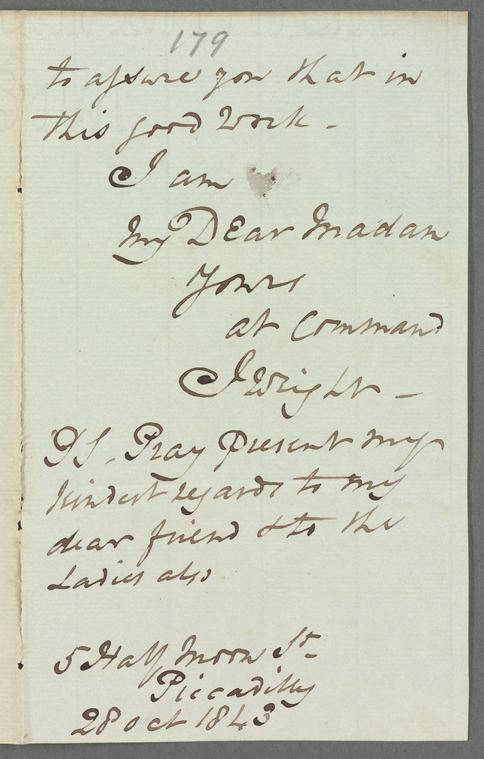 179
to assure you that in
this good work -
I am
My Dear Madam
Yours
at Command
J Wright -
PS. Pray present my
kindest regards to my
dear friend & to the
Ladies also
5 Half Moon St
Piccadilly
28 Oct 1843